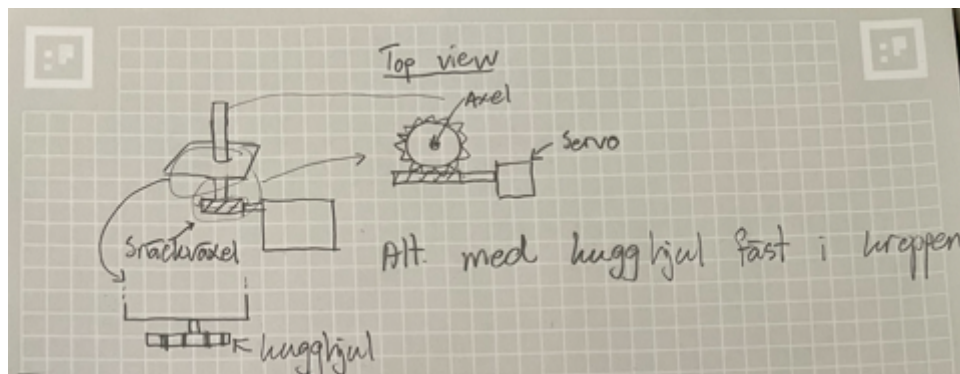 Top view
Axel
Servo
Snäckväxel
Alt. med kugghjul fäst i kroppen
kugghjul